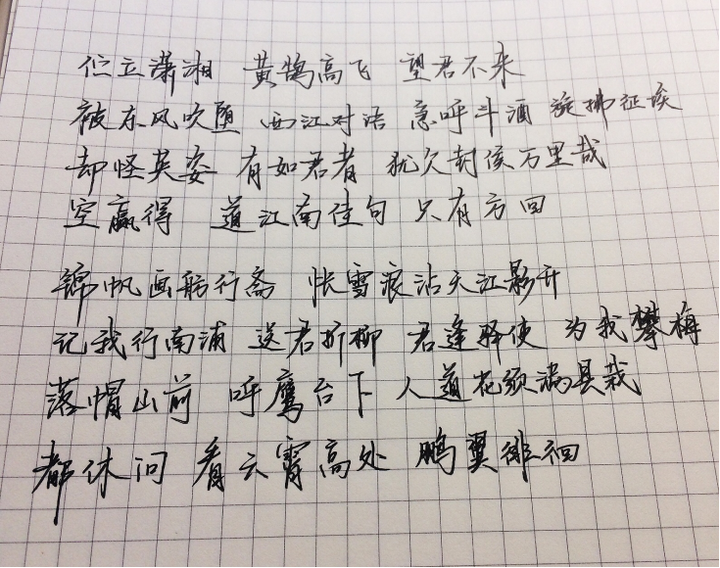 伫立潇湘 黄鹄高飞 望君不来
被东风吹堕 西江对语 急呼斗酒 旋拂征埃
却怪英姿 有如君者 犹欠封侯万里哉
空赢得 道江南佳句 只有方回
锦帆画舫行斋 怅雪浪沾天江影开
记我行南浦 送君折柳 君逢驿使 为我攀梅
落帽山前 呼鹰台下 人道花须满县栽
都休问 看云霄高处 鹏翼徘徊